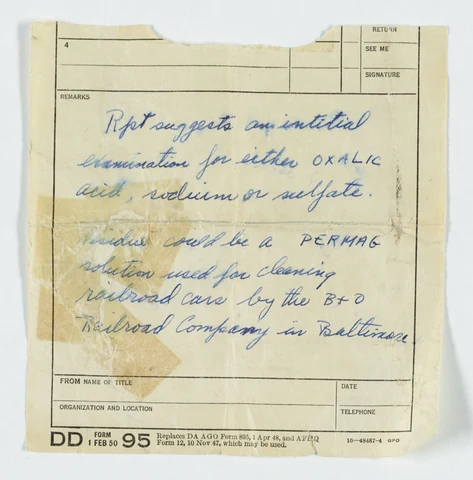 RETURN
4
SEE ME
SIGNATURE
REMARKS
Rpt suggests an intitial
examination for either OXALIC
acid, sodium or sulfate.
Residue could be a PERMAG
solution used for cleaning
railroad cars by the B+O
Railroad Company in Baltimore.
FROM NAME OF TITLE
DATE
ORGANIZATION AND LOCATION
TELEPHONE
DD FORM 1 FEB 50 95 Replaces DA AGO Form 895, 1 Apr 48, and AFHQ
Form 12, 10 Nov 47, which may be used.
16—48487-4 GPO